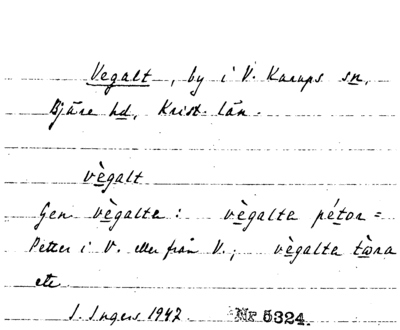 Vegalt, by i V. Karups sn,
Bjäre hd, Krist. län.
vègalt
Gen vègalta: vègalta pétor =
Petter i V. eller från V.; vègalta tòra
etc
I. Ingers 1942 Nr 5324.